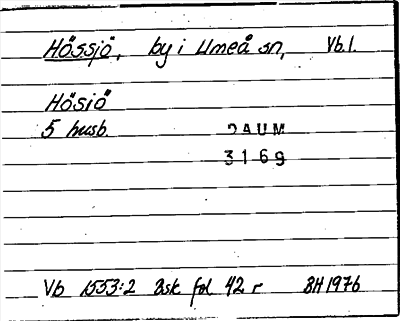 Hössjö, by i Umeå sn, Vb.l.
Hösiö
5 husb.
DAUM
3169
Vb 1553:2 Åsk fol 42 r BH 1976